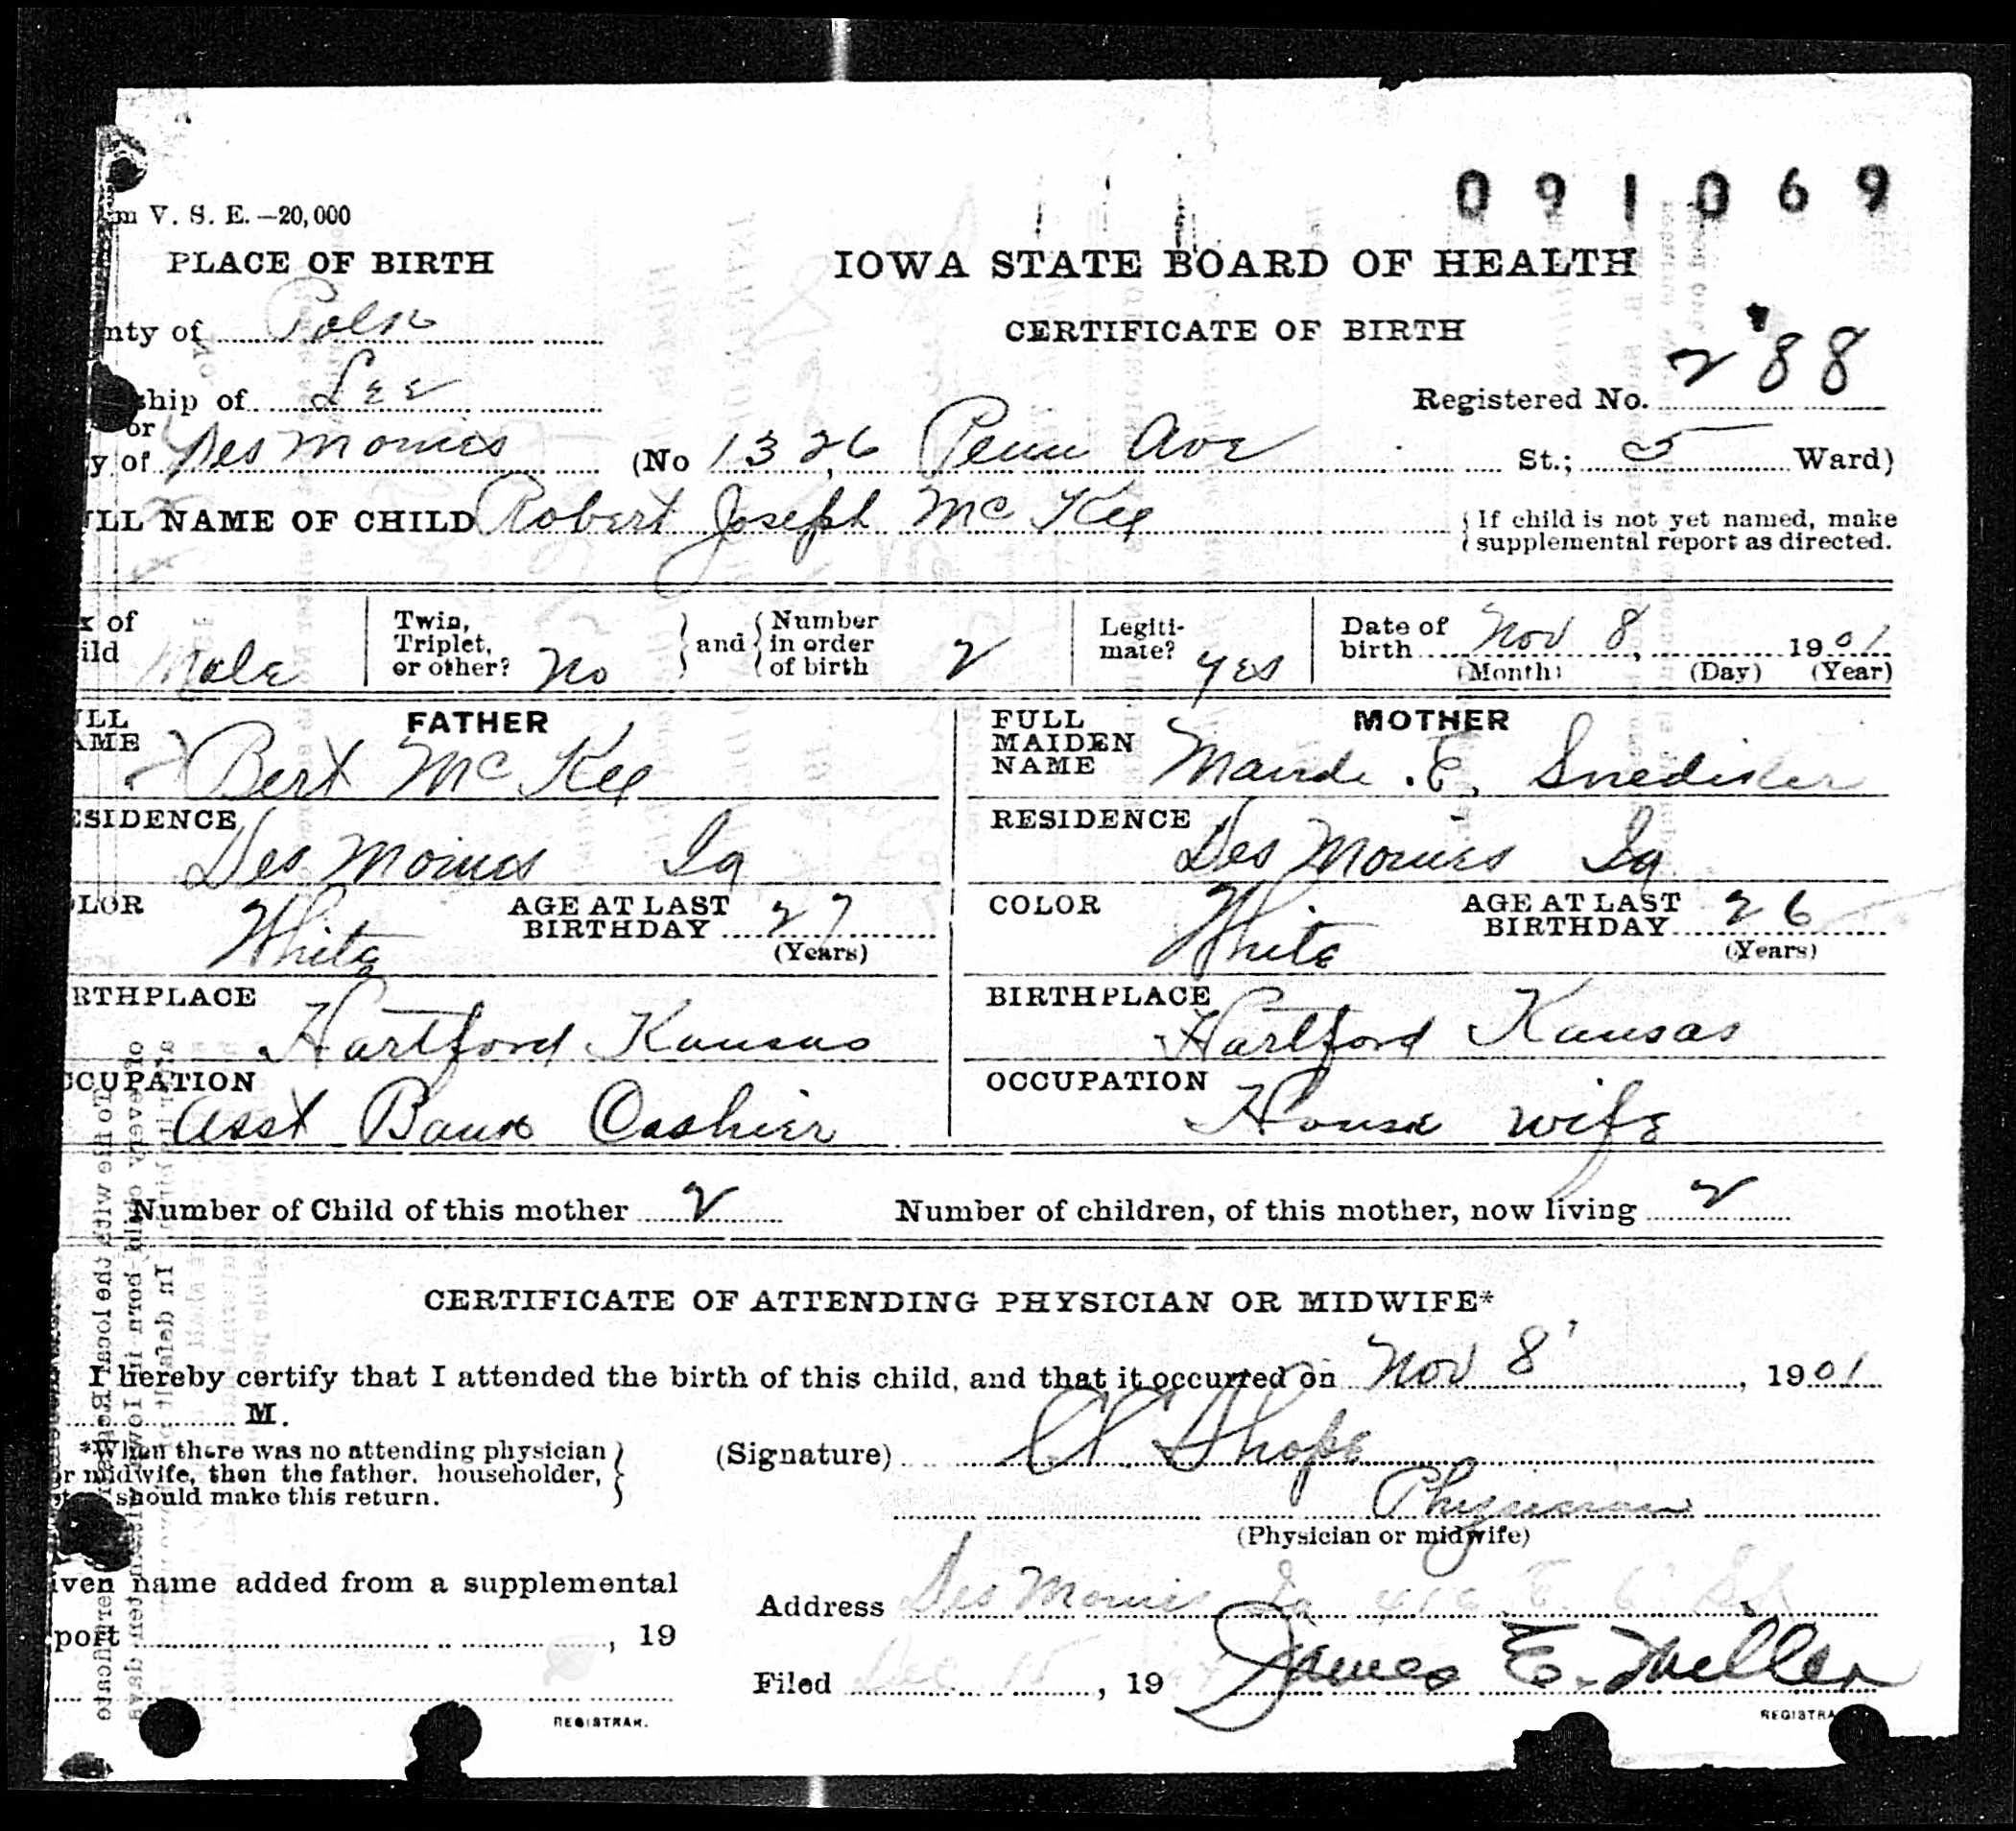 091069
m V. S. E.—20,000
PLACE OF BIRTH
IOWA STATE BOARD OF HEALTH
nty of Polk
CERTIFICATE OF BIRTH
ship of Lee
Registered No. 288
or
y of Des Moines (No 1326 Penn Ave St.; 5 Ward)
ULL NAME OF CHILD Robert Joseph McKee { If child is not yet named, make supplemental report as directed.
x of ild Male Twin, Triplet, or other? No } and { Number in order of birth 2 Legiti- mate? yes Date of birth Nov 8, 1901
(Month) (Day) (Year)
FATHER
ULL AME Bert McKee
ESIDENCE Des Moines Ia
LOR White AGE AT LAST BIRTHDAY 27 (Years)
RTHPLACE Hartford Kansas
CCUPATION Asst Bank Cashier
MOTHER
FULL MAIDEN NAME Maude E. Snediker
RESIDENCE Des Moines Ia
COLOR White AGE AT LAST BIRTHDAY 26 (Years)
BIRTHPLACE Hartford Kansas
OCCUPATION House wife
Number of Child of this mother 2 Number of children, of this mother, now living 2
CERTIFICATE OF ATTENDING PHYSICIAN OR MIDWIFE*
I hereby certify that I attended the birth of this child, and that it occurred on Nov 8, 1901
M.
*When there was no attending physician
r midwife, then the father, householder,
should make this return. }
(Signature) Shope
Physician
(Physician or midwife)
iven name added from a supplemental
port , 19
REGISTRAR.
Address Des Moines Ia
Filed Dec , 19 James E. Miller
REGISTRA